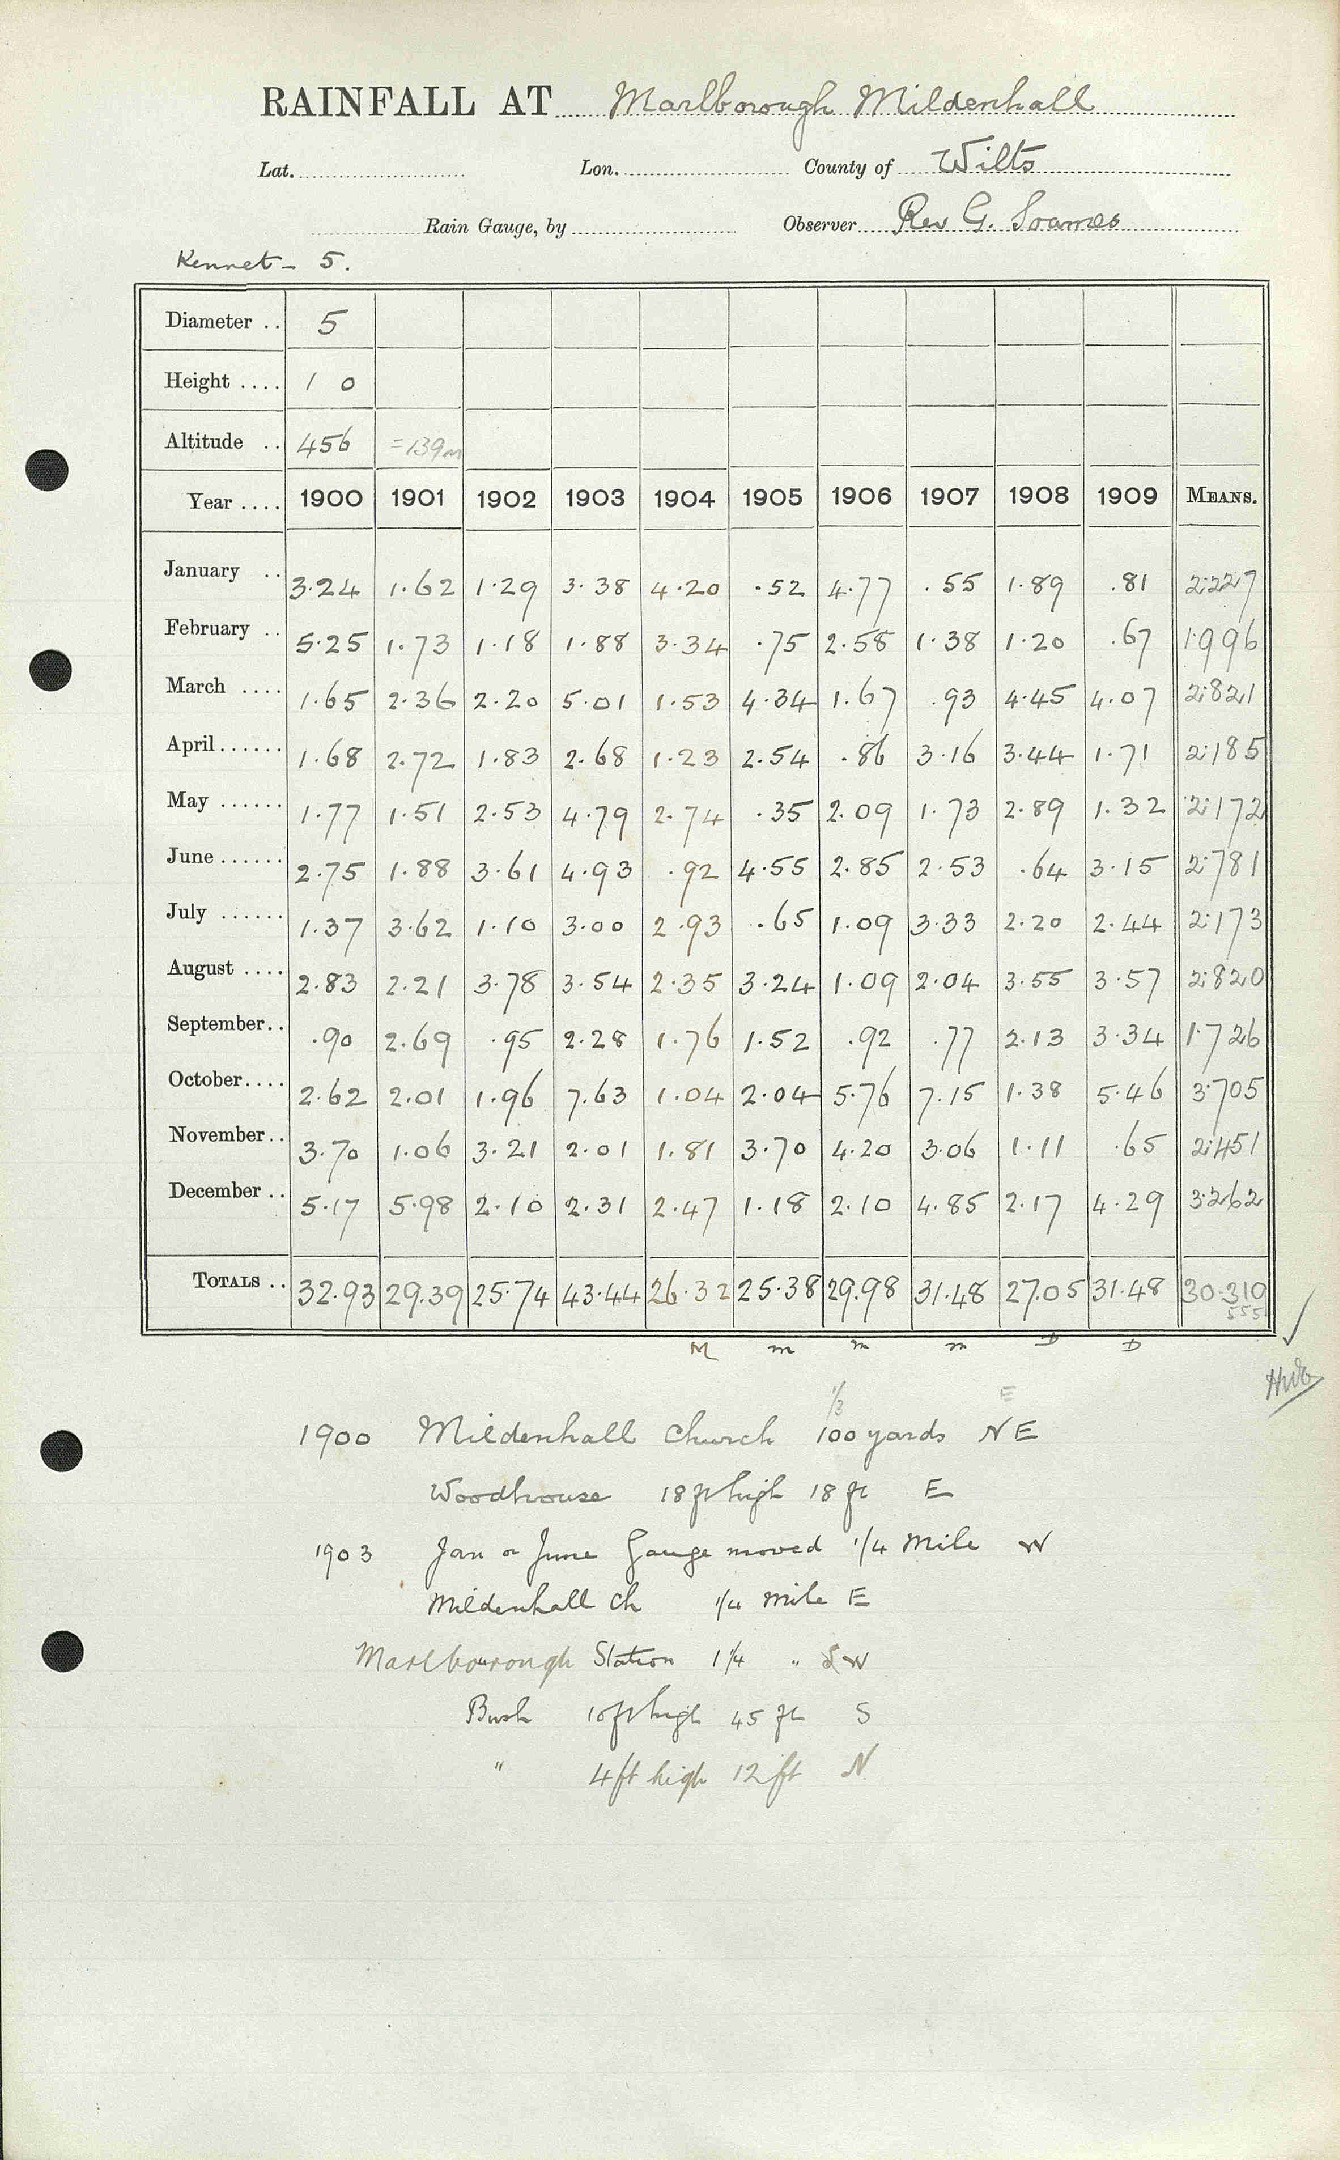 RAINFALL AT Marlborough Mildenhall
Lat. Lon. County of Wilts
Rain Gauge, by Observer Rev G. Soames
Kennet - 5.
Diameter .. 5
Height .... 1 0
Altitude .. 456 =139m
Year .... 1900 1901 1902 1903 1904 1905 1906 1907 1908 1909 MEANS.
January .. 3.24 1.62 1.29 3.38 4.20 .52 4.77 .55 1.89 .81 2.227
February .. 5.25 1.73 1.18 1.88 3.34 .75 2.58 1.38 1.20 .67 1.996
March .... 1.65 2.36 2.20 5.01 1.53 4.34 1.67 .93 4.45 4.07 2.821
April ...... 1.68 2.72 1.83 2.68 1.23 2.54 .86 3.16 3.44 1.71 2.185
May ...... 1.77 1.51 2.53 4.79 2.74 .35 2.09 1.73 2.89 1.32 2.172
June ...... 2.75 1.88 3.61 4.93 .92 4.55 2.85 2.53 .64 3.15 2.781
July ...... 1.37 3.62 1.10 3.00 2.93 .65 1.09 3.33 2.20 2.44 2.173
August .... 2.83 2.21 3.78 3.54 2.35 3.24 1.09 2.04 3.55 3.57 2.820
September.. .90 2.69 .95 2.28 1.76 1.52 .92 .77 2.13 3.34 1.726
October.... 2.62 2.01 1.96 7.63 1.04 2.04 5.76 7.15 1.38 5.46 3.705
November.. 3.70 1.06 3.21 2.01 1.81 3.70 4.20 3.06 1.11 .65 2.451
December .. 5.17 5.98 2.10 2.31 2.47 1.18 2.10 4.85 2.17 4.29 3.262
TOTALS .. 32.93 29.39 25.74 43.44 26.32 25.38 29.98 31.48 27.05 31.48 30.310
555
M m m m D D
1/3 E
1900 Mildenhall Church 100 yards NE
Woodhouse 18 ft high 18 ft E
1903 Jan or June Gauge moved 1/4 Mile W
Mildenhall Ch 1/4 mile E
Marlborough Station 1 1/4 " SW
Bush 10 ft high 45 ft S
" 4 ft high 12 ft N